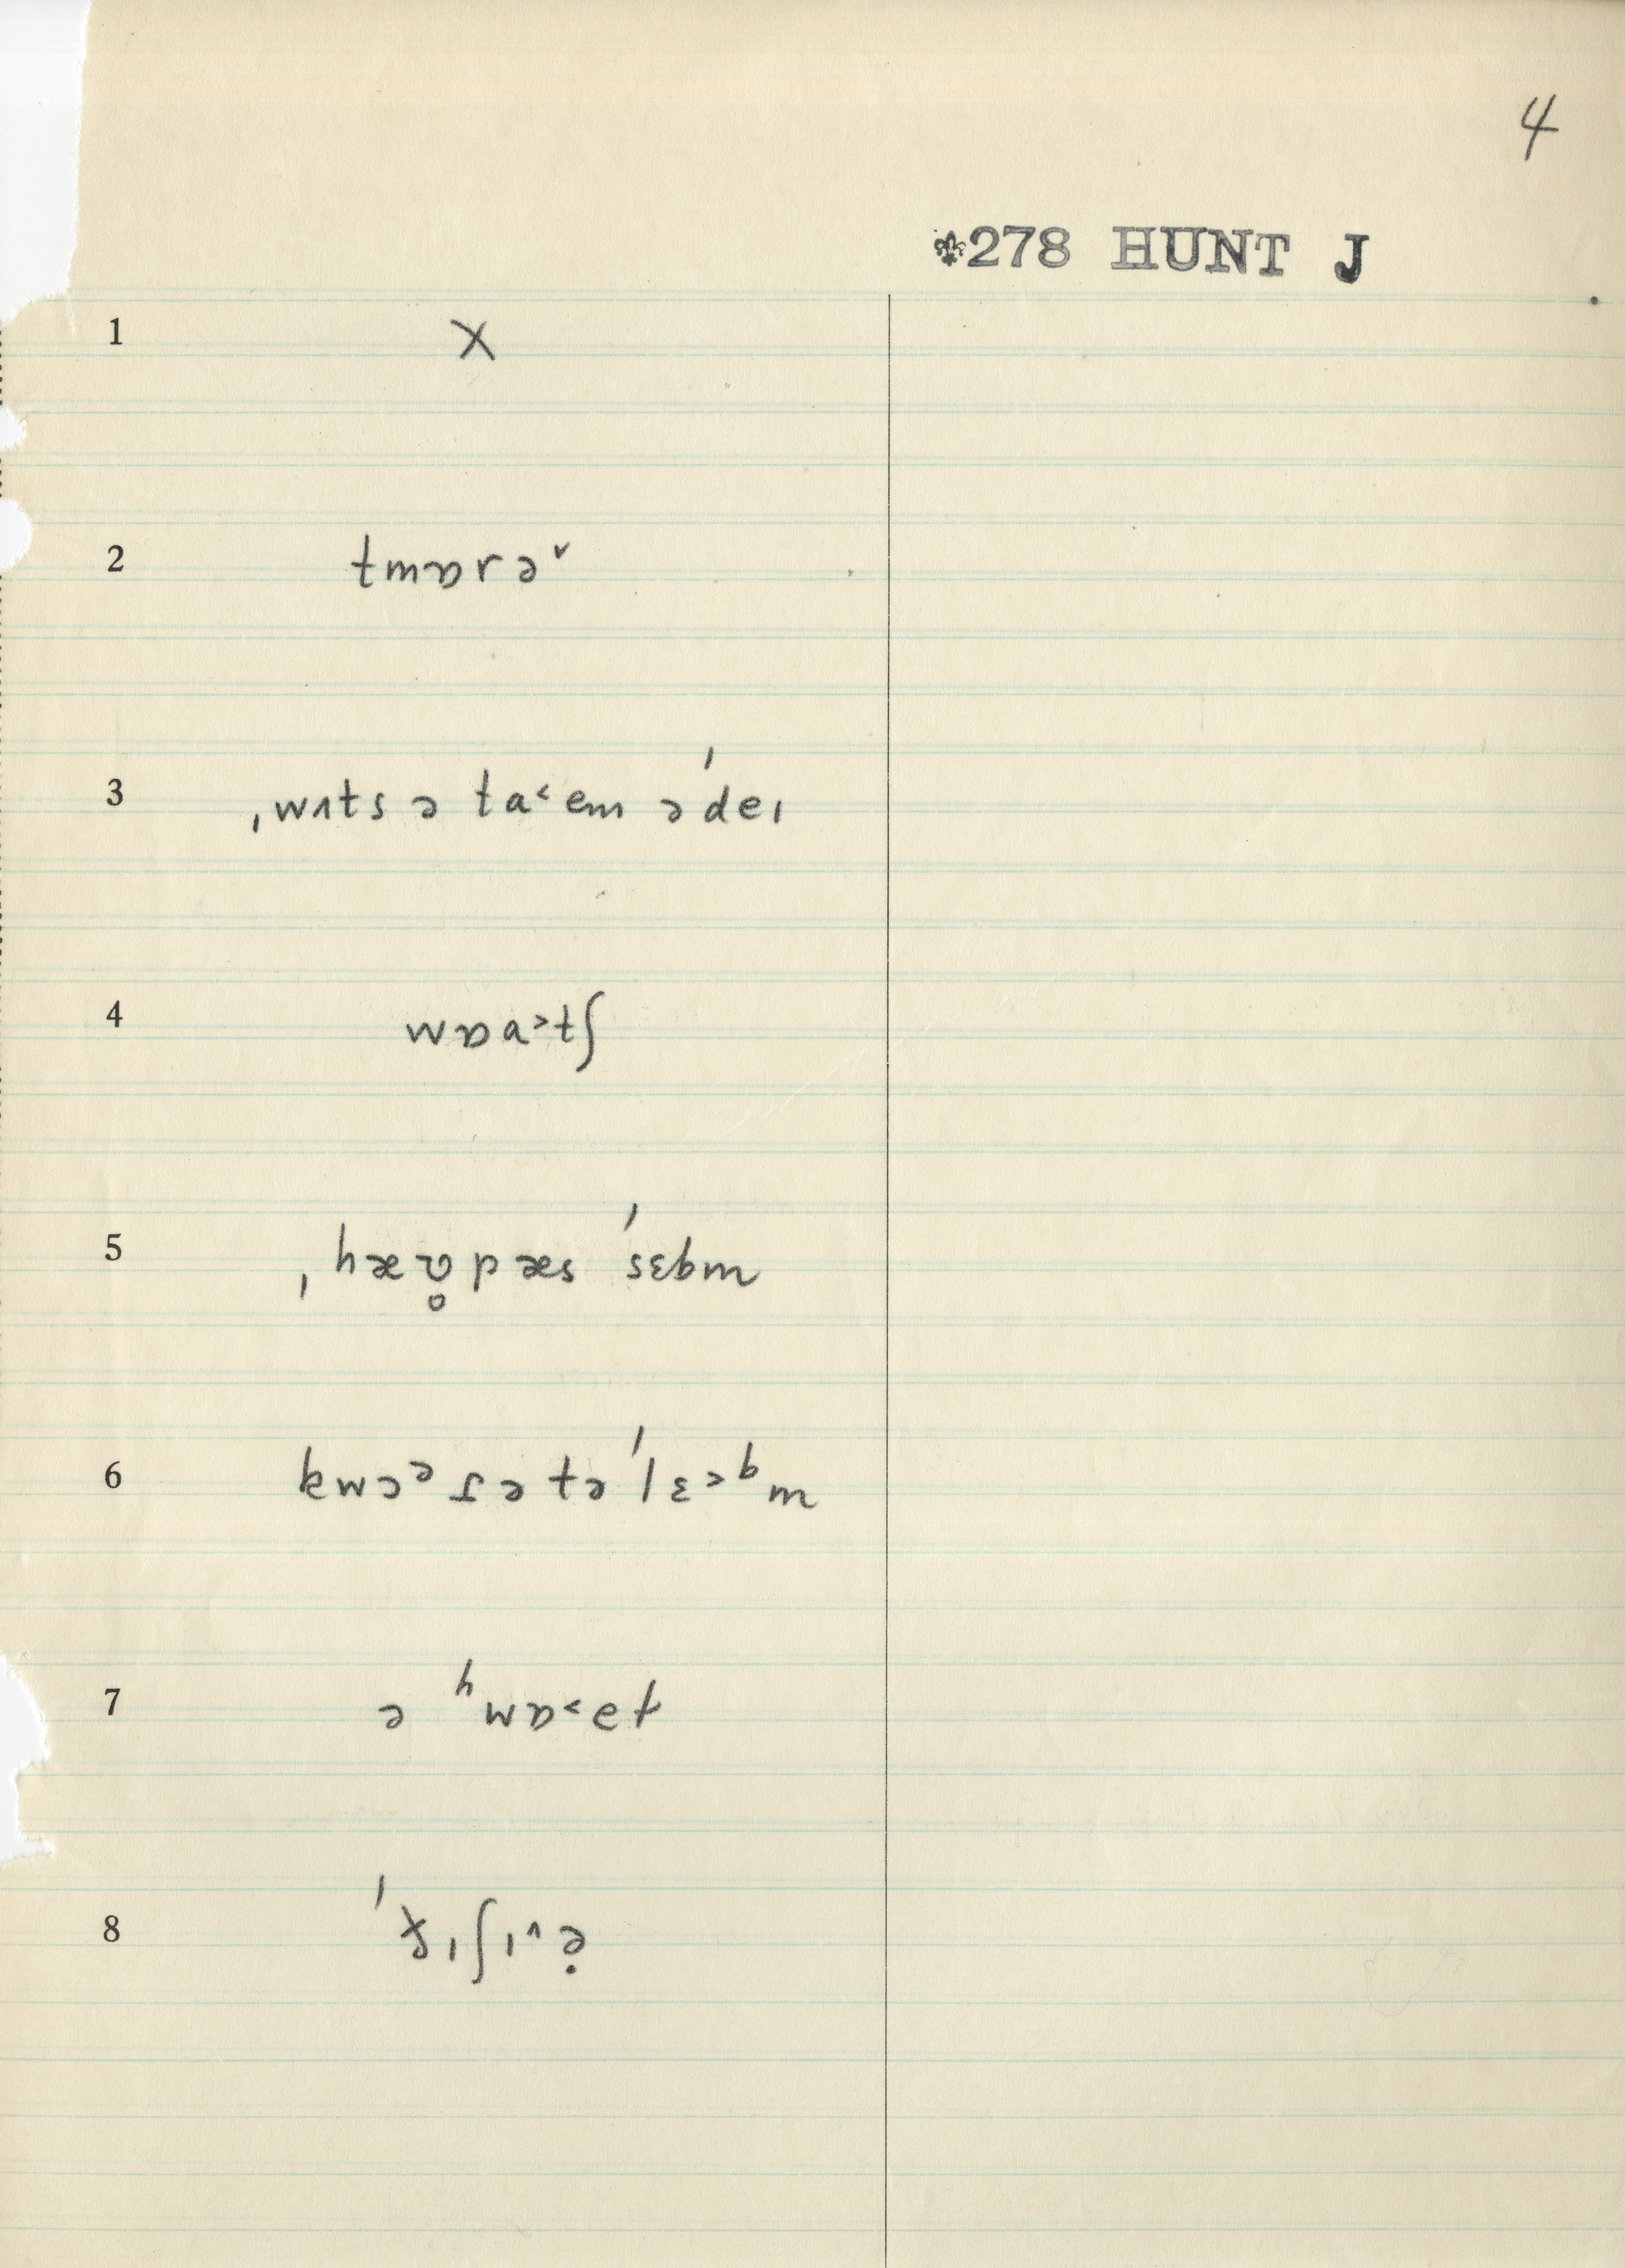 4
278 HUNT J
1 X
2 tmɒrə˅
3 ˌwʌts ə ta˂em ə ˈdeɪ
4 wɒa˃tʃ
5 ˌhæʊ̥ pæs ˈsɛbm
6 kwɔᵊ ɾə tə ˈlɛ˃ᵇm
7 ə ʰwɒ˂et
8